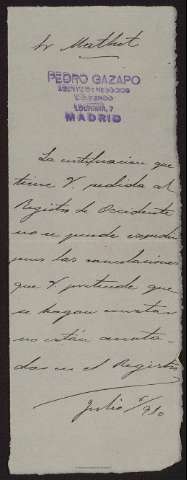 Sr Mathet
PEDRO GAZAPO
AGENTE DE NEGOCIOS
MADRID
La certificacion que
tiene V. pedida al
Registro de Occidente
no se puede expedir
pues las cancelaciones
que V pretende que
se hagan constar
no están anota-
das en el Registro
Julio 910